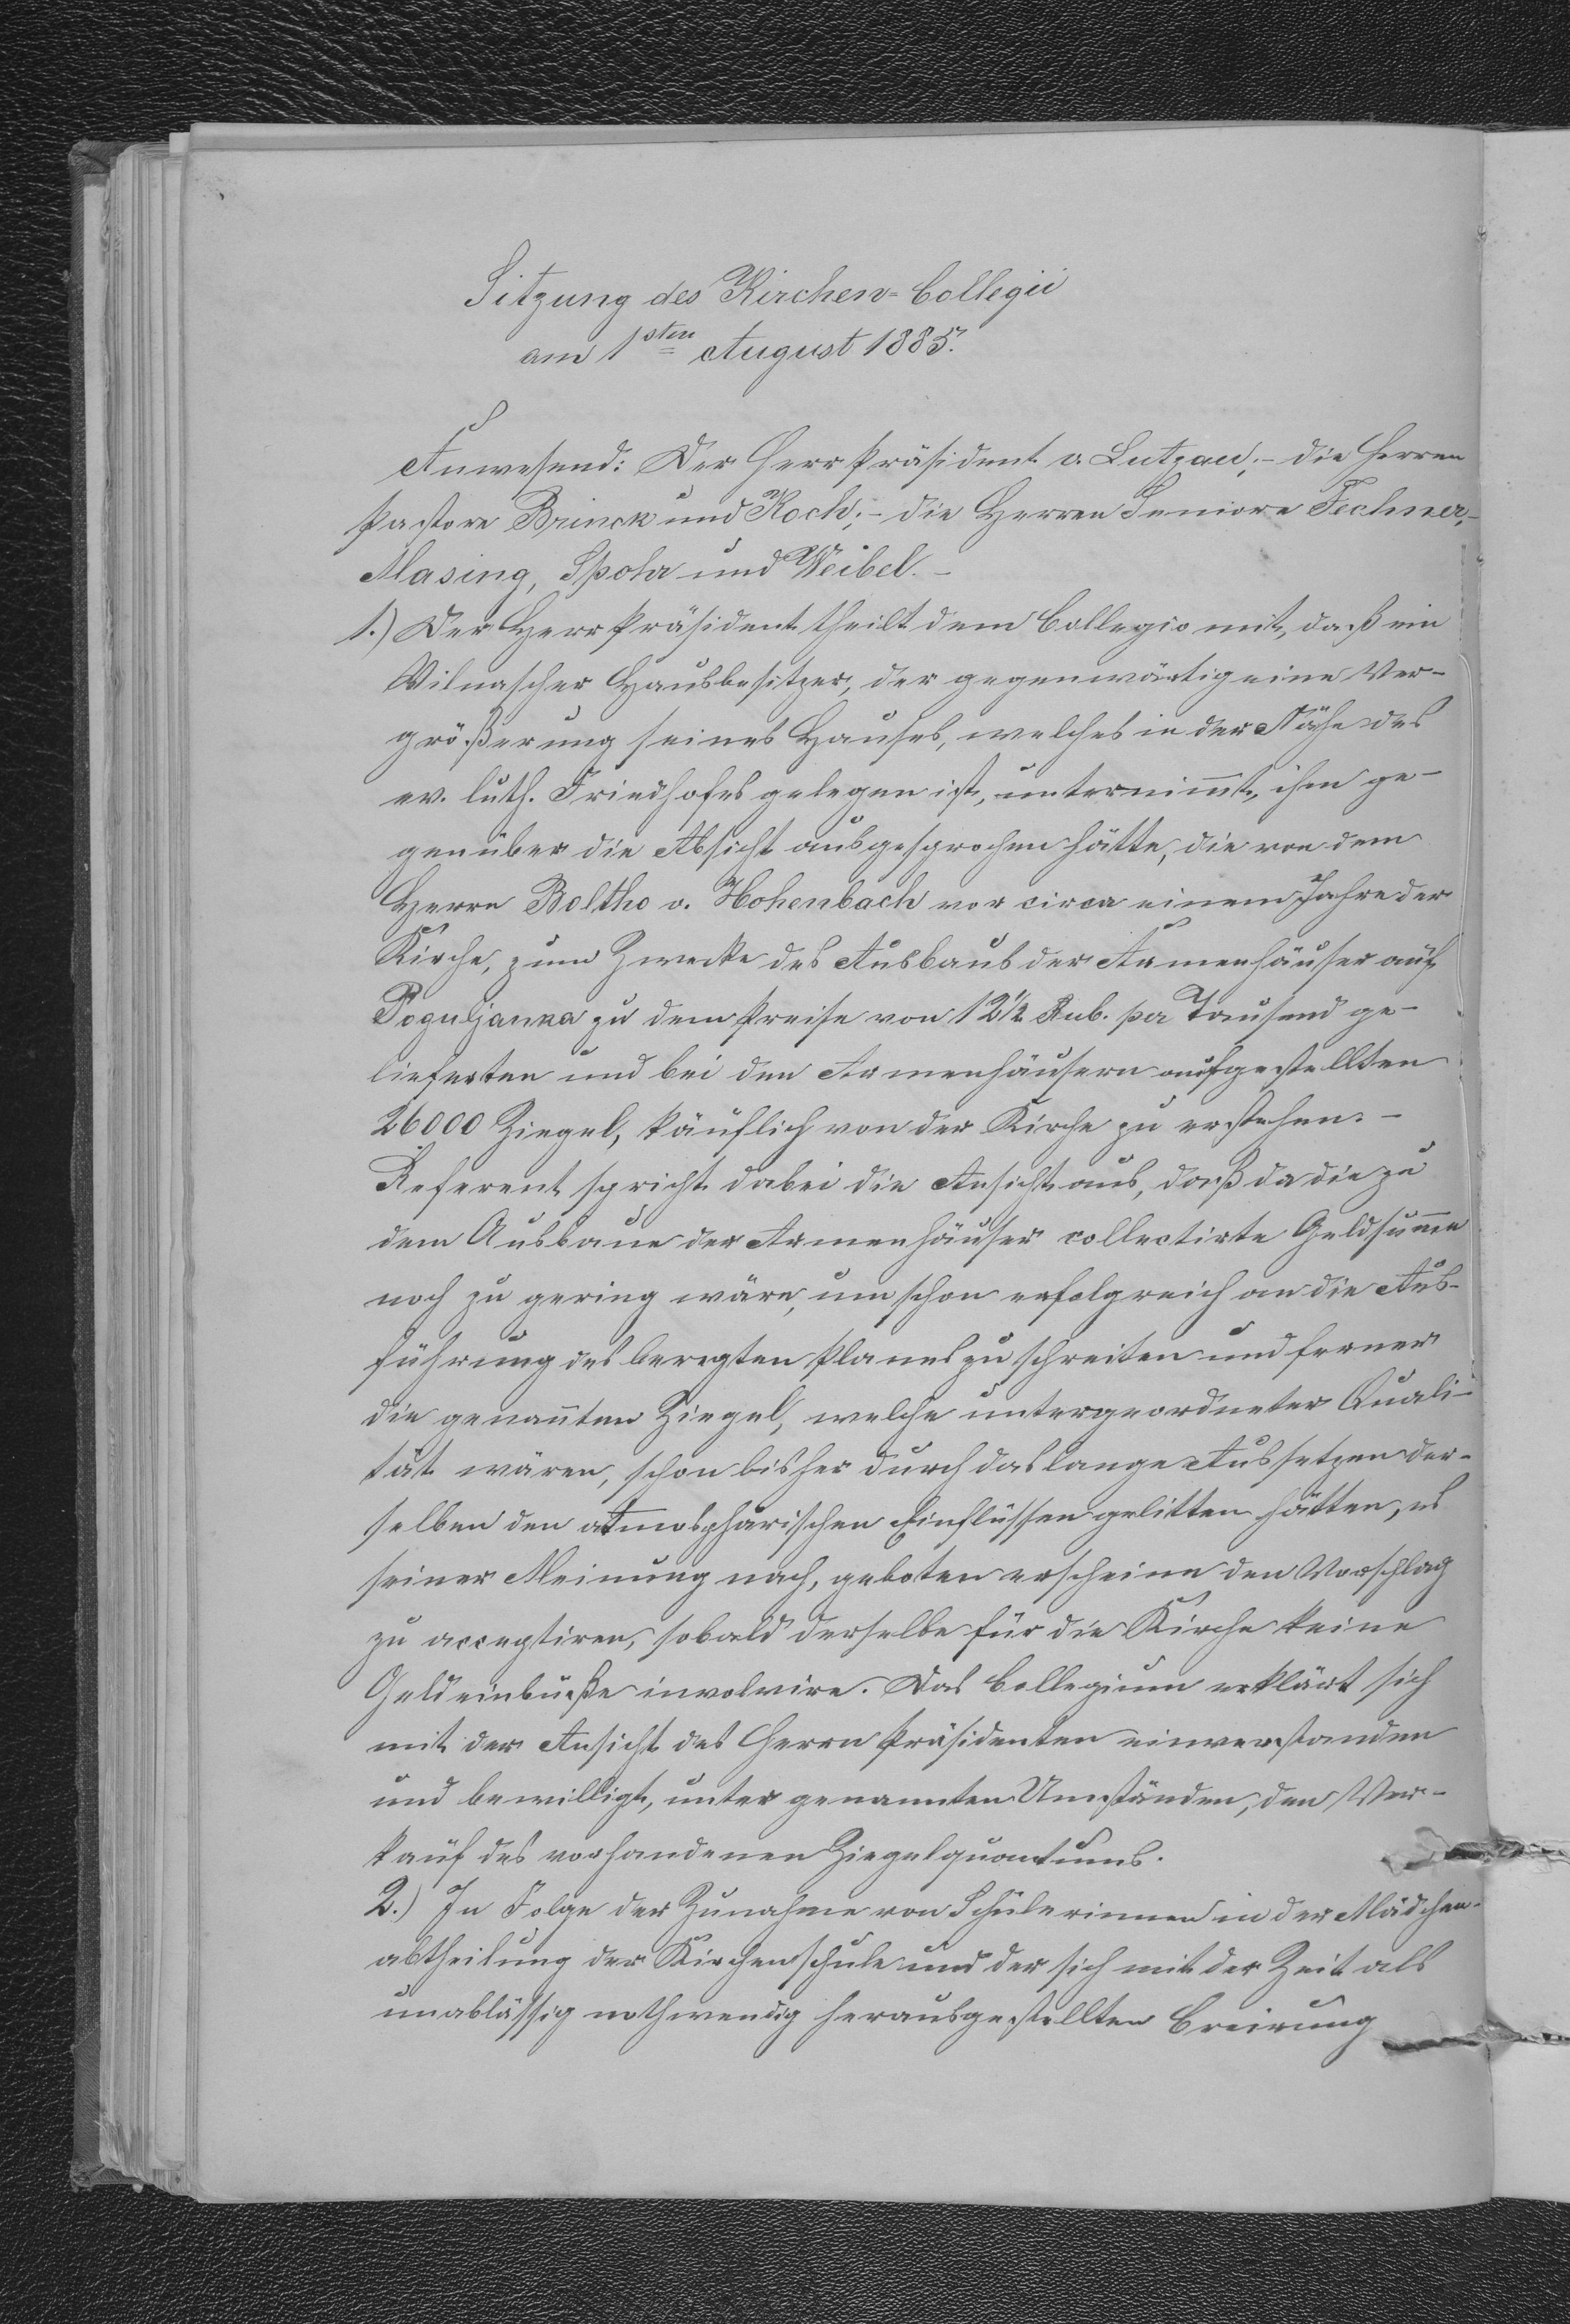 Sitzung des Kirchen-Collegii
am 1sten August 1885.
Anwesend: Der Herr Präsident v. Lutzau;- die Herren
Pastore Brinck und Koch;- die Herren Seniore Fechner,-
Masing, Spohr und Weibel.-
1.) Der Herr Präsident theilt dem Collegio mit, daß ein
Wilnascher Hausbesitzer, der gegenwärtig eine Ver-
größerung seines Hauses, welches in der Nähe des
ev. luth. Friedhofes gelegen ist, unternimmt, ihm ge-
genüber die Absicht ausgesprochen hätte, die von dem
Herrn Boltho v. Hohenbach vor circa einem Jahre der
Kirche, zum Zwecke des Ausbaus der Armenhäuser auf
Poguljanka zu dem Preise von 12½ Rub. per Tausend ge-
lieferten und bei den Armenhäusern aufgestellten
26000 Ziegel, käuflich von der Kirche zu erstehen.-
Referent spricht dabei die Ansicht aus, daß da die zu
dem Ausbaue der Armenhäuser collectirte Geldsumme
noch zu gering wäre, um schon erfolgreich an die Aus-
führung des beregten Planes zu schreiten und ferner
die genannten Ziegel, welche untergeordneter Quali-
tät wären, schon bisher durch das lange Aussetzen der-
selben den atmosphärischen Einflüssen gelitten hätten, es
seiner Meinung nach, geboten erscheine den Vorschlag
zu acceptiren, sobald derselbe für die Kirche keine
Geldeinbuße involvire. Das Collegium erklärt sich
mit der Ansicht des Herrn Präsidenten einverstanden
und bewilligt, unter genannten Umständen, den Ver-
kauf des vorhandenen Ziegelquantums.
2.) In Folge der Zunahme von Schülerinnen in der Mädchen-
abtheilung der Kirchenschule und der sich mit der Zeit als
unablässig nothwendig herausgestellten Creirung